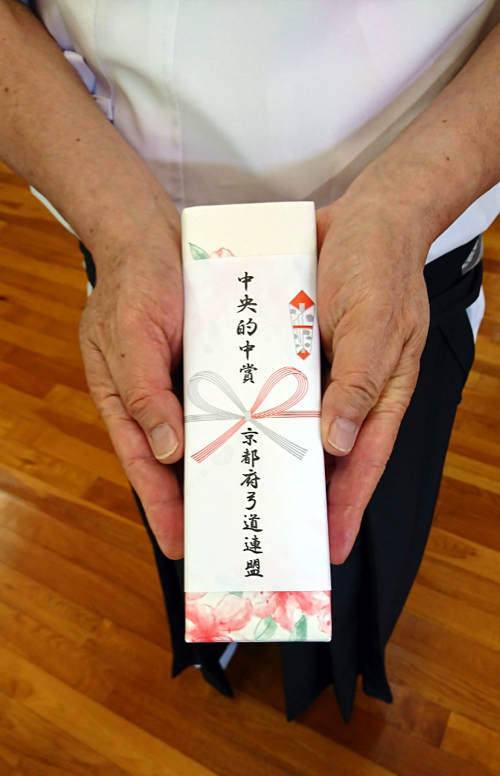 中央的中賞
京都府弓道連盟